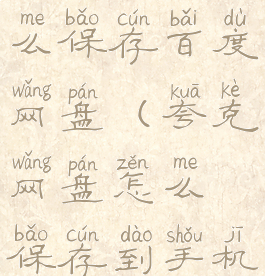 me bǎo cún bǎi dù
么保存百度
wǎng pán kuā kè
网盘（夸克
wǎng pán zěn me
网盘怎么
bǎo cún dào shǒu jī
保存到手机